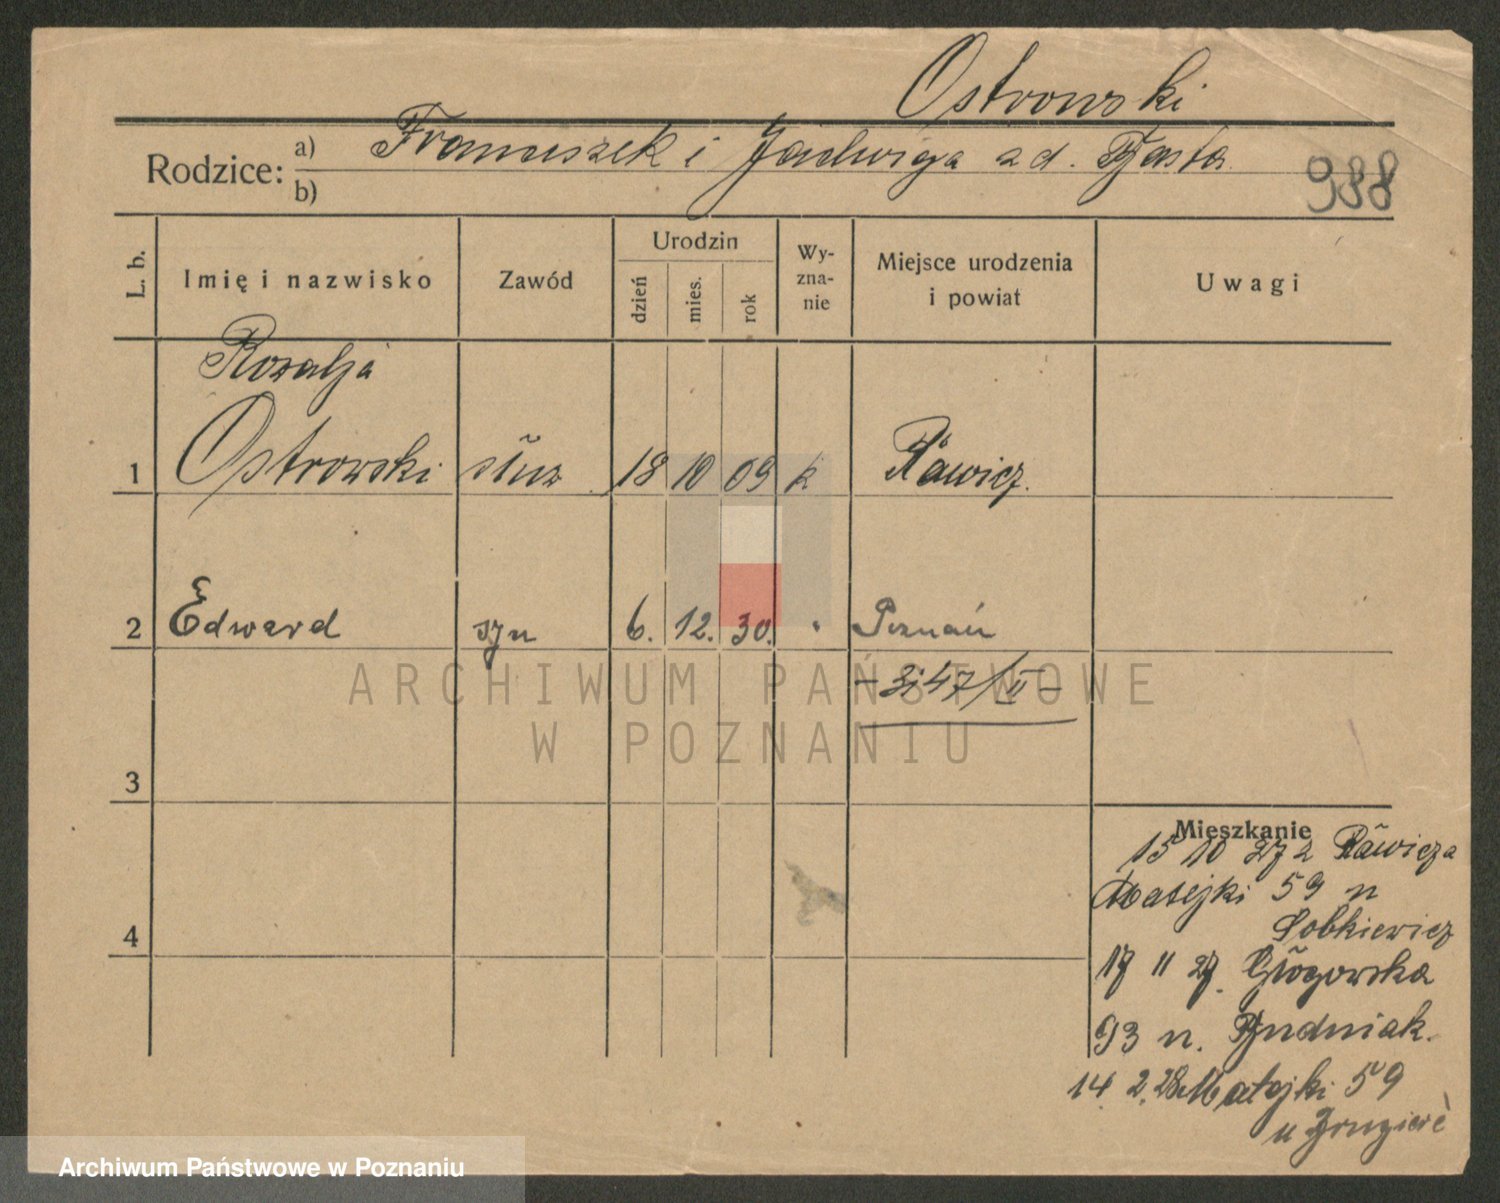 Ostrowski
Rodzice: a) Franciszek i Jadwiga z d. Basta
b)
988
L. b.
Imię i nazwisko
Zawód
Urodzin
dzień
mies.
rok
Wy-
zna-
nie
Miejsce urodzenia
i powiat
Uwagi
Rozalja
1 Ostrowski służ 18 10 09 k Rawicz.
2 Edward syn 6. 12. 30. Poznań
3
4
Mieszkanie
15 10 27 z Rawicza
Matejki 59 u
Sobkiewicz
17 11 27. Głogowska
93 u. Rudniak.
14. 2. 28 Matejki 59
u
ARCHIWUM PAŃSTWOWE
W POZNANIU
Archiwum Państwowe w Poznaniu